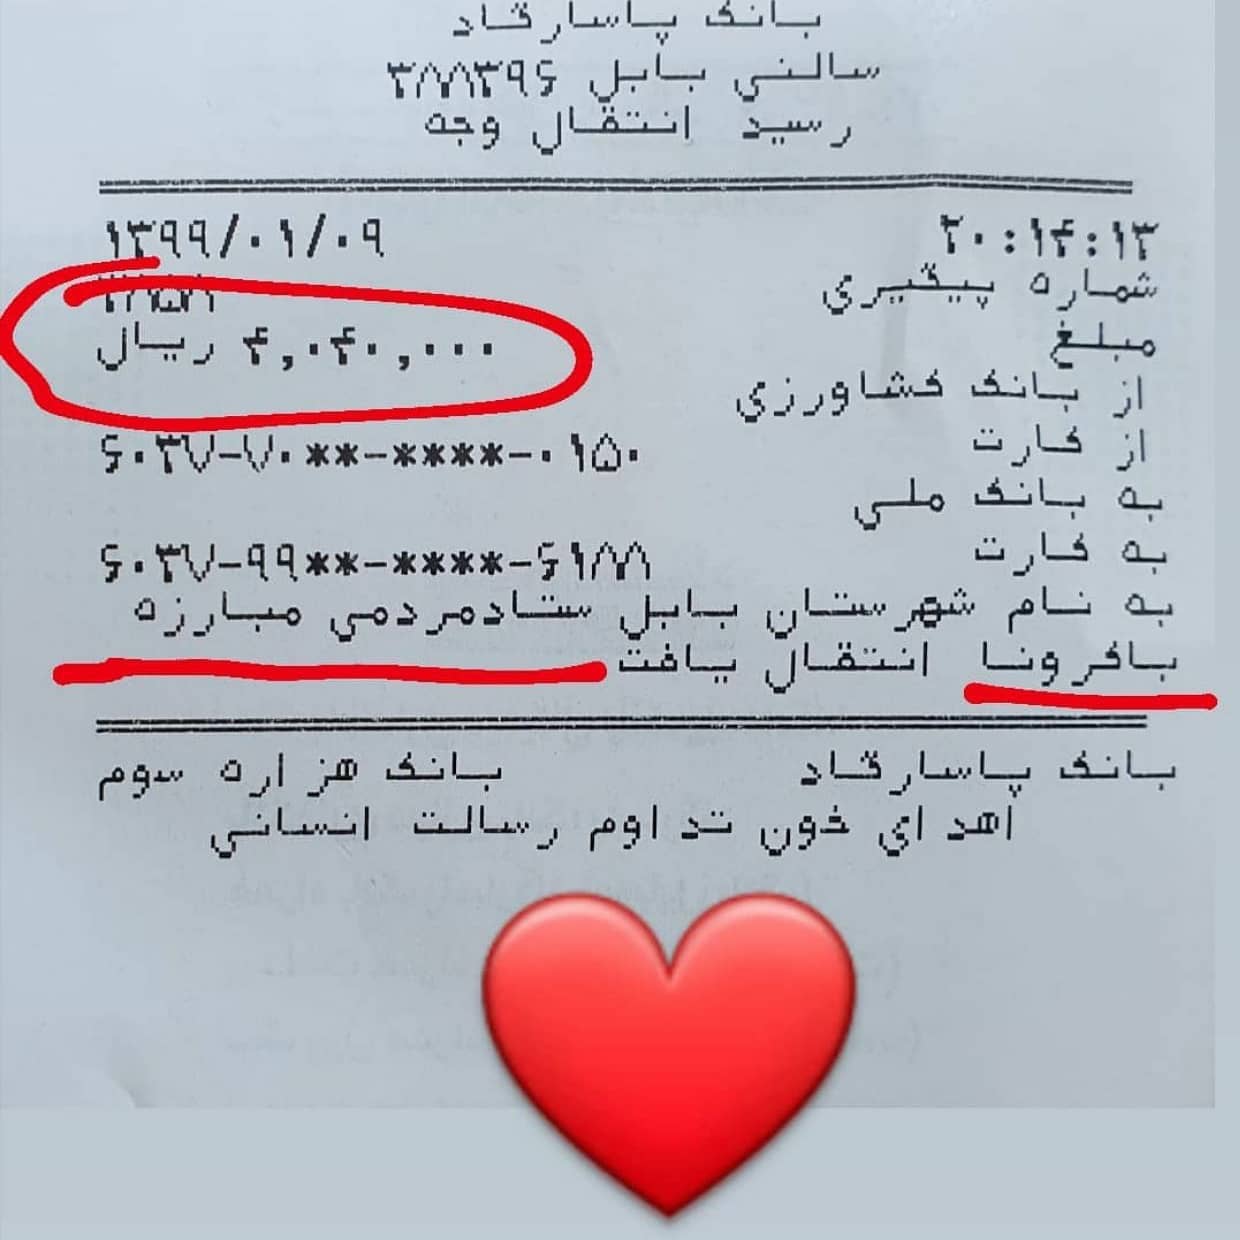 بانک پاسارگاد
سالنی بابل ۳۸۸۳۹۶
رسید انتقال وجه
۱۳۹۹/۰۱/۰۹ ۲۰:۱۴:۱۳
شماره پیگیری
مبلغ ۴,۰۴۰,۰۰۰ ریال
از بانک کشاورزی
از کارت ۶۰۳۷-۷۰**-****-۰۱۵۰
به بانک ملی
به کارت ۶۰۳۷-۹۹**-****-۶۱۸۸
به نام شهرستان بابل ستادمردمی مبارزه
باکرونا انتقال یافت
بانک پاسارگاد بانک هزاره سوم
اهدای خون تداوم رسالت انسانی